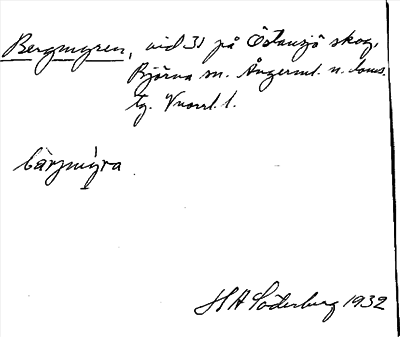 Bergmyren, vid 31 på Östansjö skog,
Björna sn. Ångerml. n. doms.
tg. Vnorrl. l.
bärjmỳra
H A Söderberg 1932